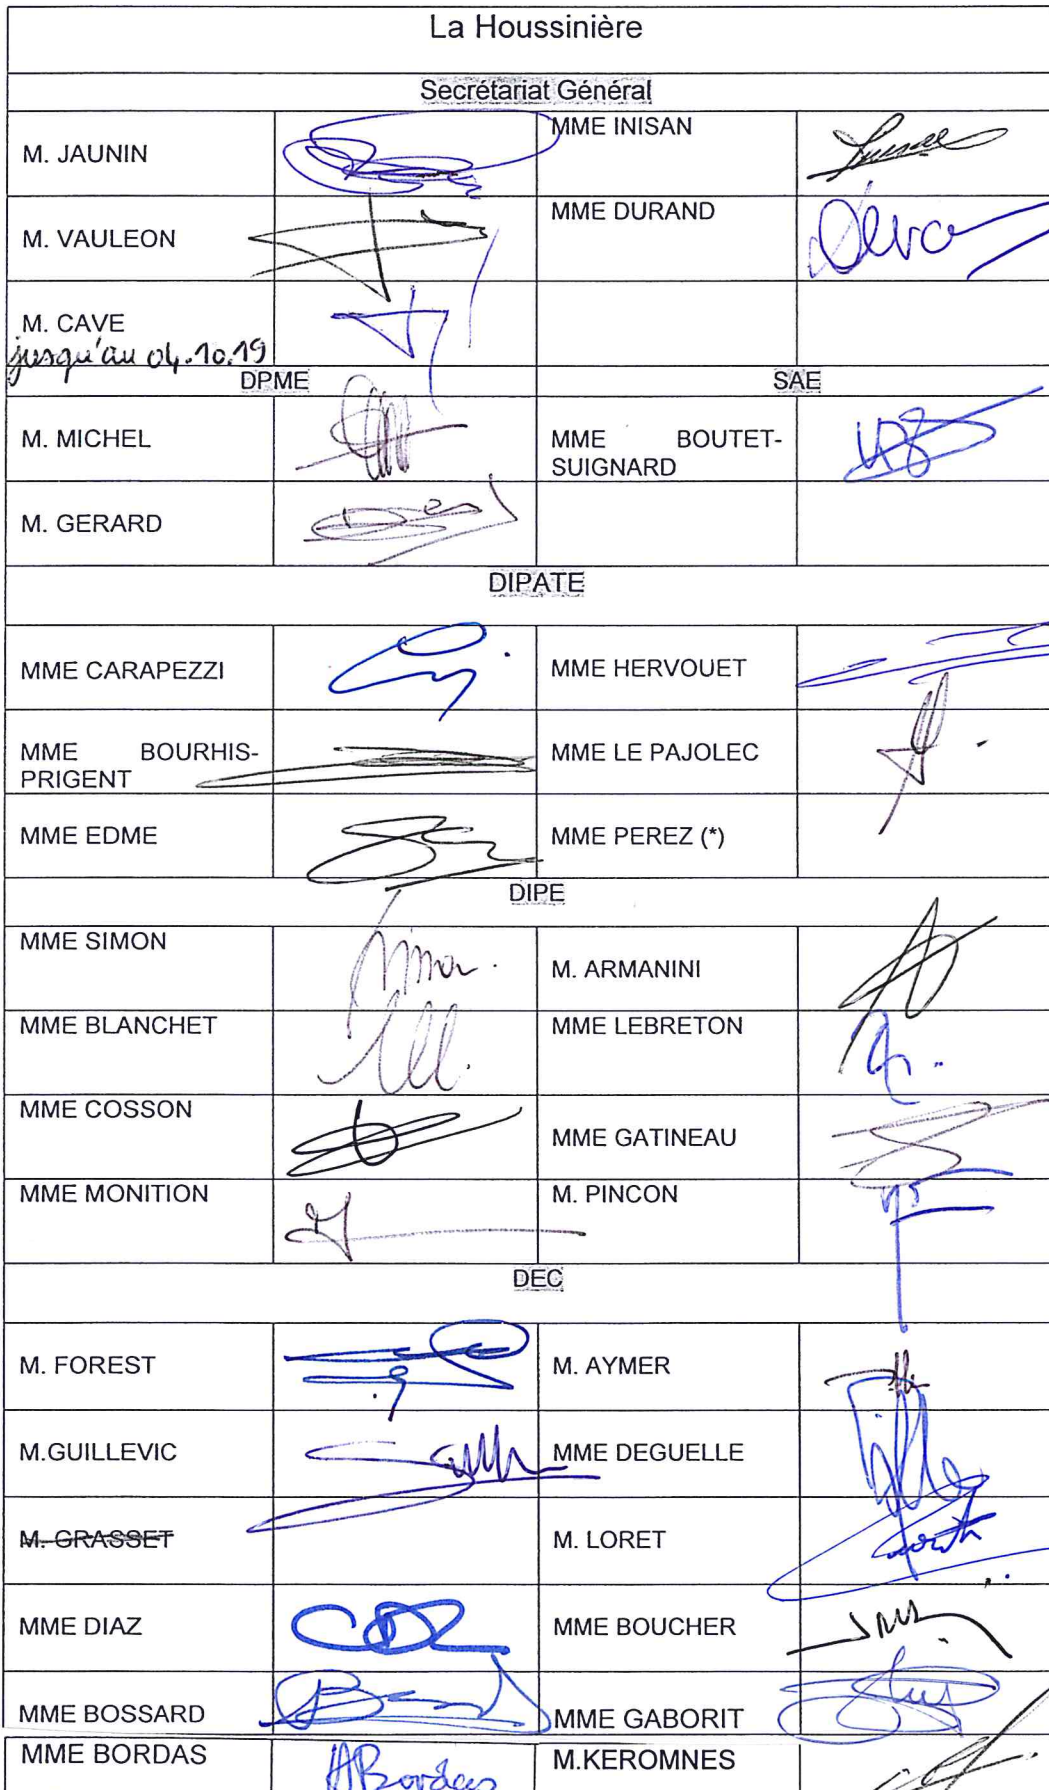 La Houssinière
Secrétariat Général
M. JAUNIN
MME INISAN
M. VAULEON
MME DURAND
M. CAVE
jusqu'au 04.10.19
DPME
SAE
M. MICHEL
MME BOUTET-
SUIGNARD
M. GERARD
DIPATE
MME CARAPEZZI
MME HERVOUET
MME BOURHIS-
PRIGENT
MME LE PAJOLEC
MME EDME
MME PEREZ (*)
DIPE
MME SIMON
M. ARMANINI
MME BLANCHET
MME LEBRETON
MME COSSON
MME GATINEAU
MME MONITION
M. PINCON
DEC
M. FOREST
M. AYMER
M.GUILLEVIC
MME DEGUELLE
M. GRASSET
M. LORET
MME DIAZ
MME BOUCHER
MME BOSSARD
MME GABORIT
MME BORDAS
ABordas
M.KEROMNES